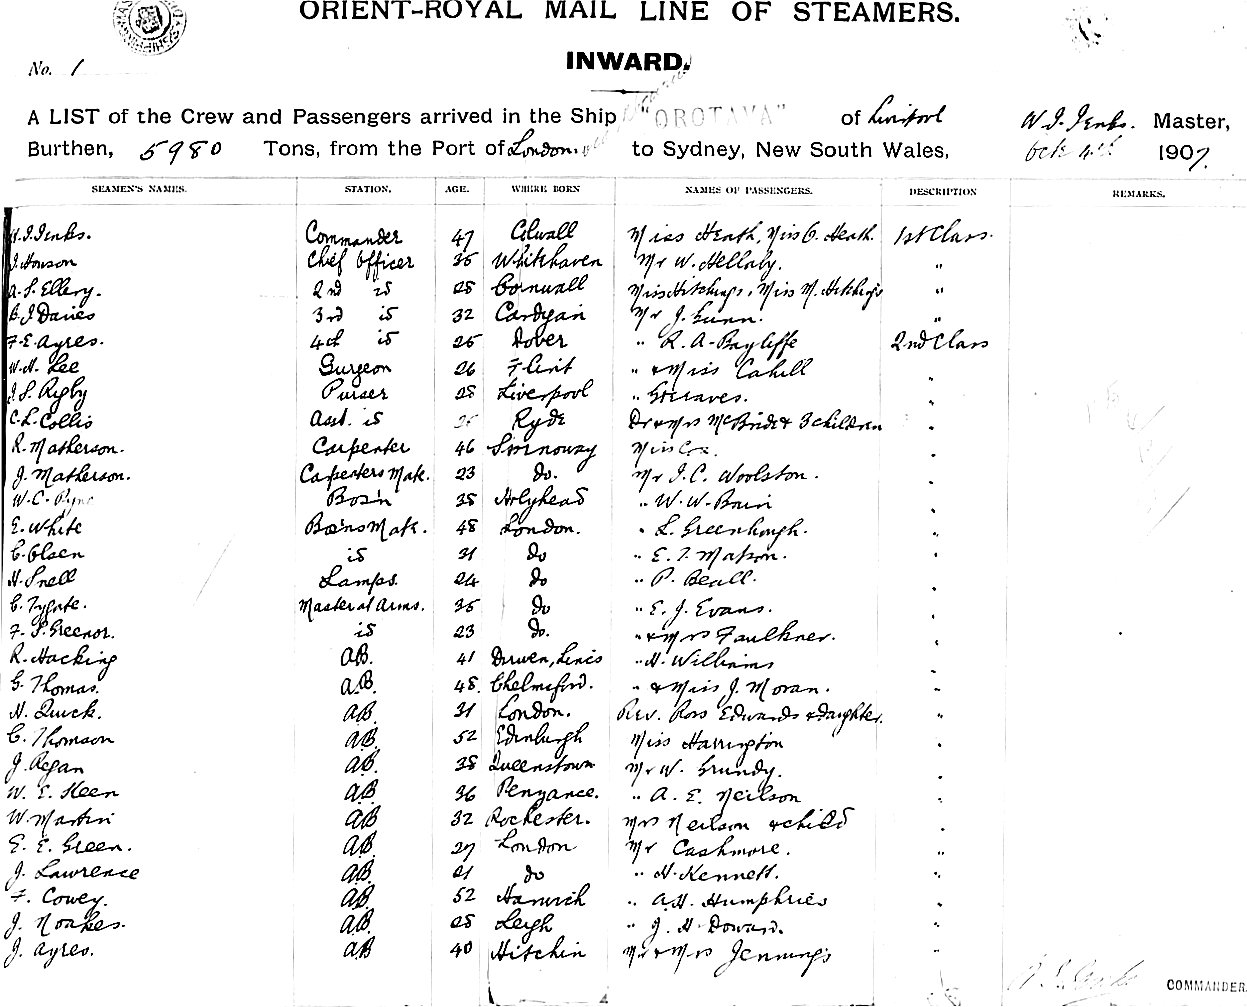 ORIENT-ROYAL MAIL LINE OF STEAMERS.
No. 1
INWARD.
A LIST of the Crew and Passengers arrived in the Ship "OROTAVA" of W. J. Jenks. Master,
Burthen, 5980 Tons, from the Port of London to Sydney, New South Wales, Oct 4th 1907.
SEAMEN'S NAMES. STATION. AGE. WHERE BORN NAMES OF PASSENGERS. DESCRIPTION REMARKS.
W. J. Jenks. Commander 47 Colwall Miss Heath, Miss G. Heath. 1st Class.
J. Howson Chief Officer 36 Whitehaven Mr W. Hellaby. "
A. S. Ellery. 2nd is 28 Cornwall Miss Hitchings, Miss M. Hitchings "
B. J. Davies 3rd is 32 Cardigan Mr J. Gunn. "
F. E. Ayres. 4th is 26 Dover " R. A. Bayliffe 2nd Class
W. H. Lee Surgeon 26 Flint " & Miss Cahill "
J. S. Rigby Purser 28 Liverpool " Greaves. "
C. L. Collis Asst. is Ryde Dr & Mrs McBride & 3 children "
R. Matherson. Carpenter 46 Stornoway Miss Cox. "
J. Matherson. Carpenters Mate. 23 do. Mr J. C. Woolston. "
W. C. Bos'n 38 Holyhead " W. W. Bain "
E. White Bos'ns Mate. 48 London. " L. Greenhough. "
C. Olsen is 31 do " E. T. Matson. "
H. Snell Lamps. 24 do " P. Beall. "
C. Tygate. Master at Arms. 36 do " E. J. Evans. "
F. S. Greenor. is 23 do. " & Mrs Faulkner. "
R. Hacking A.B. 41 Darwen, Lancs " H. Williams "
G. Thomas. A.B. 48. Chelmsford. " & Miss J. Moran. "
H. Quick. A.B. 31 London. Rev. Ross Edwards & daughter. "
C. Thomson A.B. 52 Edinburgh Miss Harrington "
J. Regan A.B. 38 Queenstown Mr W. Grundy. "
W. E. Keen A.B. 36 Penzance. " A. E. Neilson "
W. Martin A.B. 32 Rochester. Mrs Neilson & child "
E. E. Green. A.B. 27 London Mr Cashmore. "
J. Lawrence A.B. 21 do " H. Kennett. "
F. Cowey. A.B. 52 Harwich " A. H. Humphries "
J. Noakes. A.B. 28 Leigh " J. H. Doward. "
J. Ayres. A.B. 40 Hitchin Mr & Mrs Jennings "
COMMANDER.